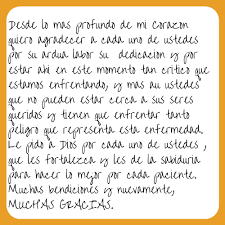 Desde lo mas profundo de mi Corazon
quiero agradecer a cada uno de ustedes
por su ardua labor su dedicacion y por
estar ahi en este momento tan critico que
estamos enfrentando, y mas au ustedes
que no pueden estar cerca a sus seres
queridos y tienen que enfrentar tanto
peligro que representa esta enfermedad.
Le pido a Dios por cada uno de ustedes ,
que les fortalezca y les de la sabiduria
para hacer lo mejor por cada paciente.
Muchas bendiciones y nuevamente,
MUCHAS GRACIAS.